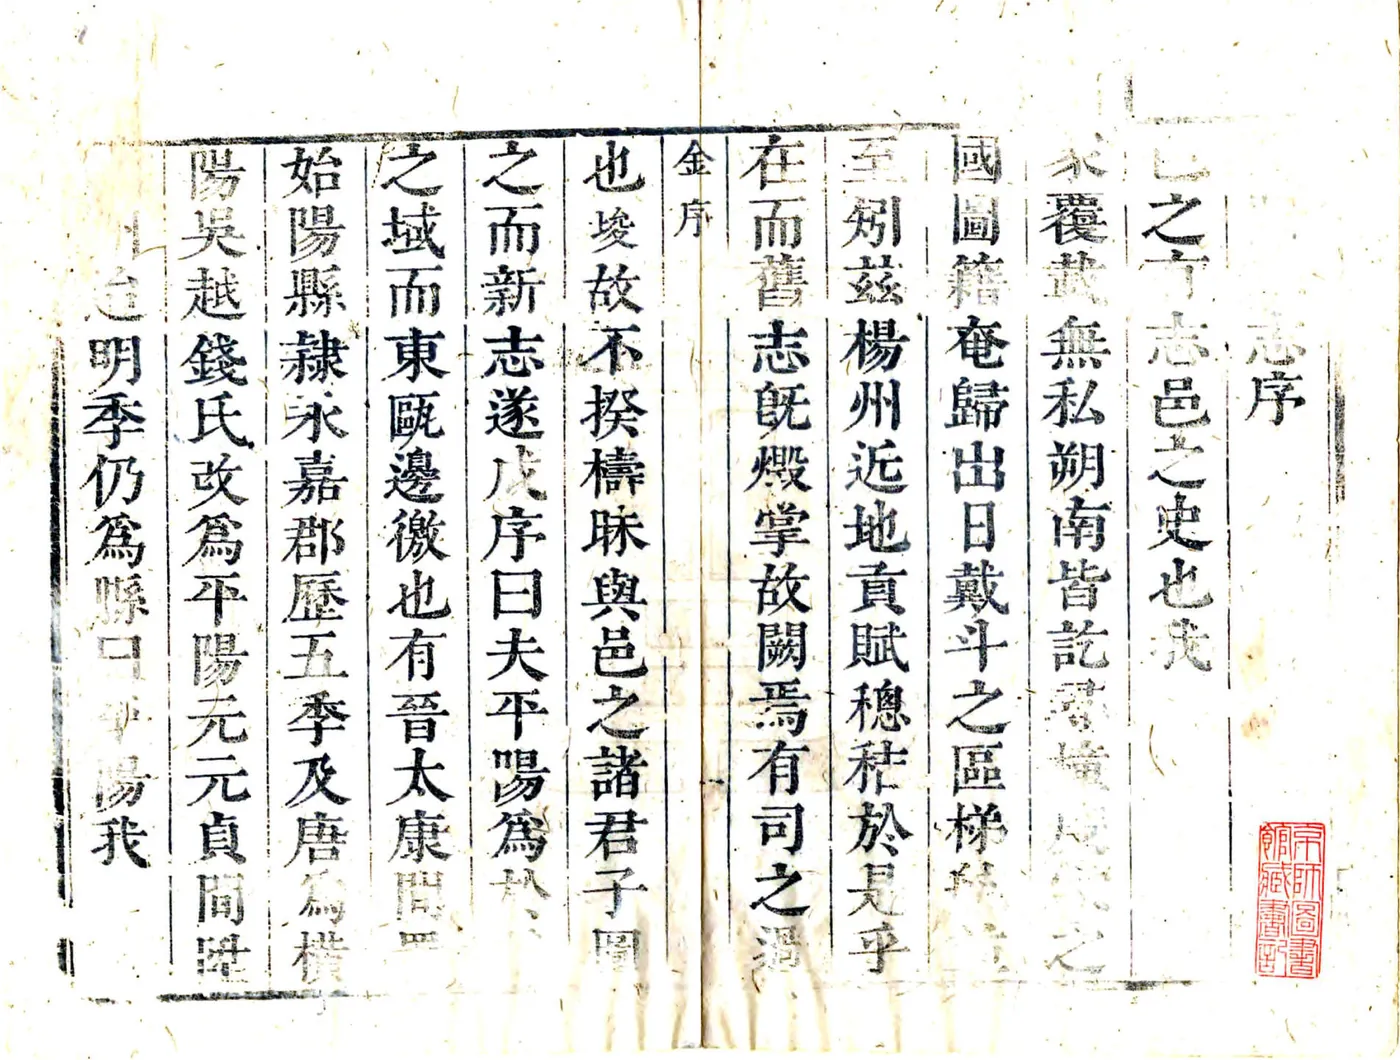 志序
之有志邑之史也我
家覆載無私朔南皆訖之
國圖籍奄歸出日戴斗之區梯
至矧茲楊州近地貢賦穗秸於是乎
在而舊志旣燬掌故闕焉有司之過
金序
也埈故不揆檮昧與邑之諸君子圖
之而新志遂成序曰夫平陽爲於
之域而東甌邊徼也有晉太康間置
始陽縣隷永嘉郡歷五季及唐爲橫
陽吳越錢氏改爲平陽元元貞間陞
州迨明季仍爲縣曰平陽我
京師圖書館藏書記